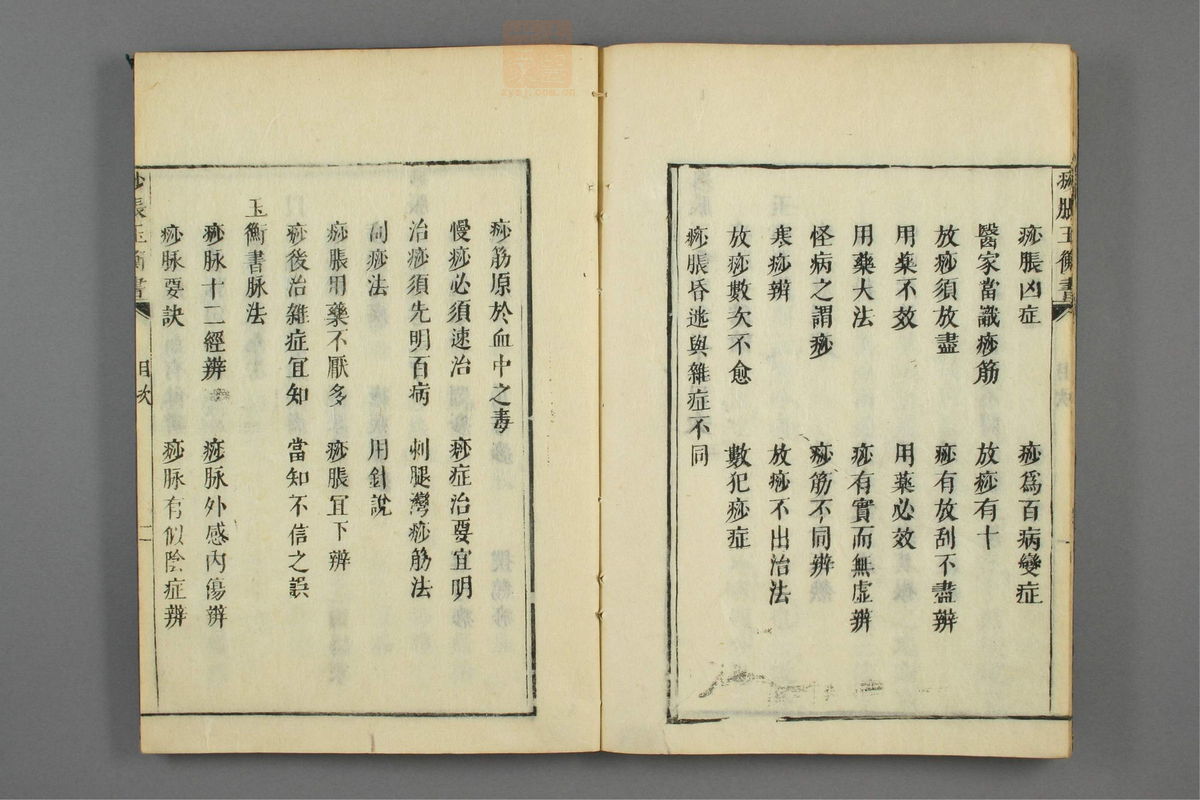 痧脹玉衡書
目次
一
痧脹凶症　痧爲百病變症
醫家當識痧筋　放痧有十
放痧須放盡　痧有放刮不盡辨
用藥不效　用藥必效
用藥大法　痧有實而無虛辨
怪病之謂痧　痧筋不同辨
寒痧辨　放痧不出治法
放痧數次不愈　數犯痧症
痧脹昏迷與雜症不同
痧筋原於血中之毒
慢痧必須速治　痧症治要宜明
治痧須先明百病　刺腿灣痧筋法
刮痧法　用針說
痧脹用藥不厭多　痧脹冝下辨
痧後治雜症冝知　當知不信之誤
玉衡書脉法
痧脉十二經辨　痧脉外感內傷辨
痧脉要訣　痧脉有似陰症辨
痧脹玉衡書
目次
二